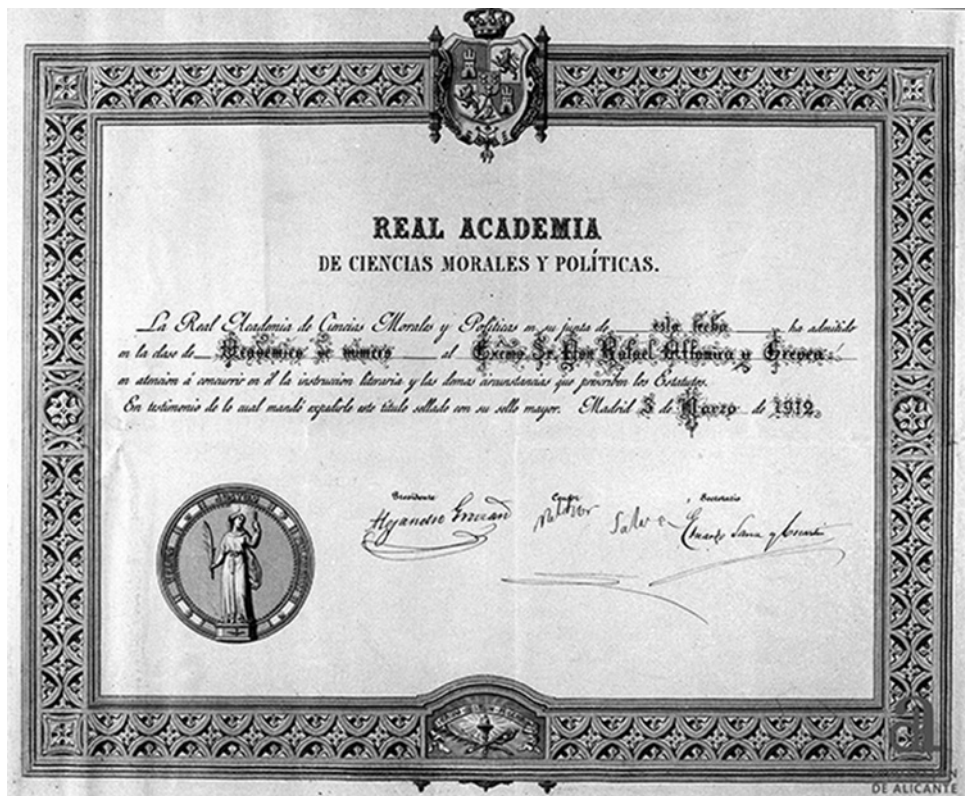 REAL ACADEMIA
DE CIENCIAS MORALES Y POLÍTICAS.
La Real Academia de Ciencias Morales y Políticas en su junta de esta fecha ha admitido
en la clase de Académico de número al Excmo. Sr. Don Rafael Altamira y Crevea
en atencion á concurrir en él la instruccion literaria y las demas circunstancias que prescriben los Estatutos.
En testimonio de lo cual mandó expedirle este título sellado con su sello mayor. Madrid 5 de Marzo de 1912.
Presidente Censor Secretario
Alejandro Salvador Eduardo Sanz y
DE ALICANTE